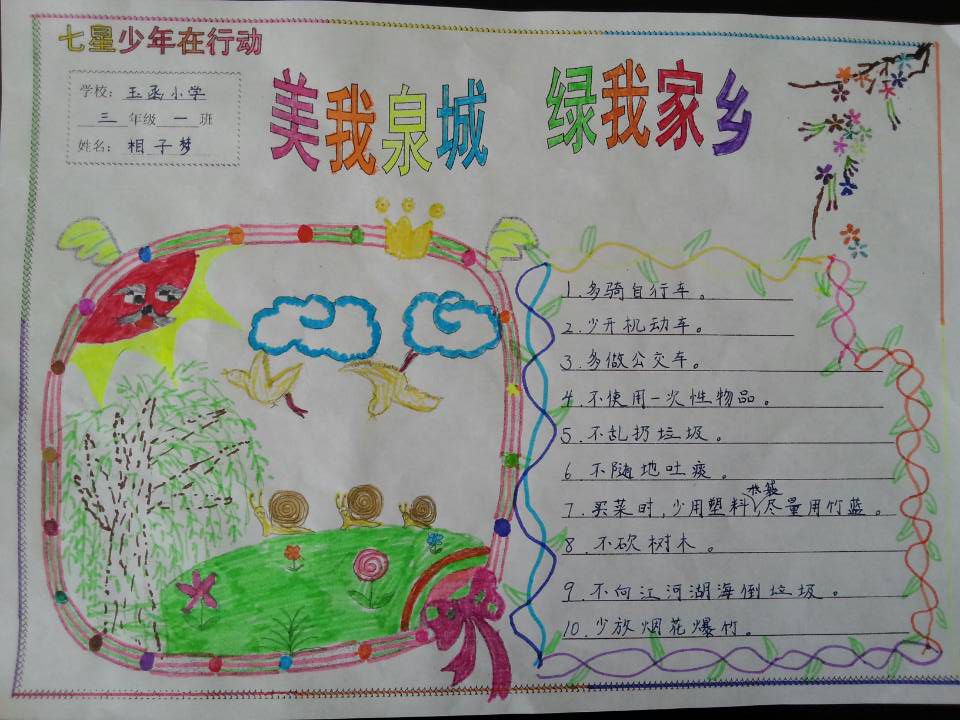 七星少年在行动
学校：玉函小学
三年级一班
姓名：相子梦
美我泉城 绿我家乡
1.多骑自行车。
2.少开机动车。
3.多做公交车。
4.不使用一次性物品。
5.不乱扔垃圾。
6.不随地吐痰。
7.买菜时，少用塑料水袋尽量用竹蓝。
8.不砍树木。
9.不向江河湖海倒垃圾。
10.少放烟花爆竹。